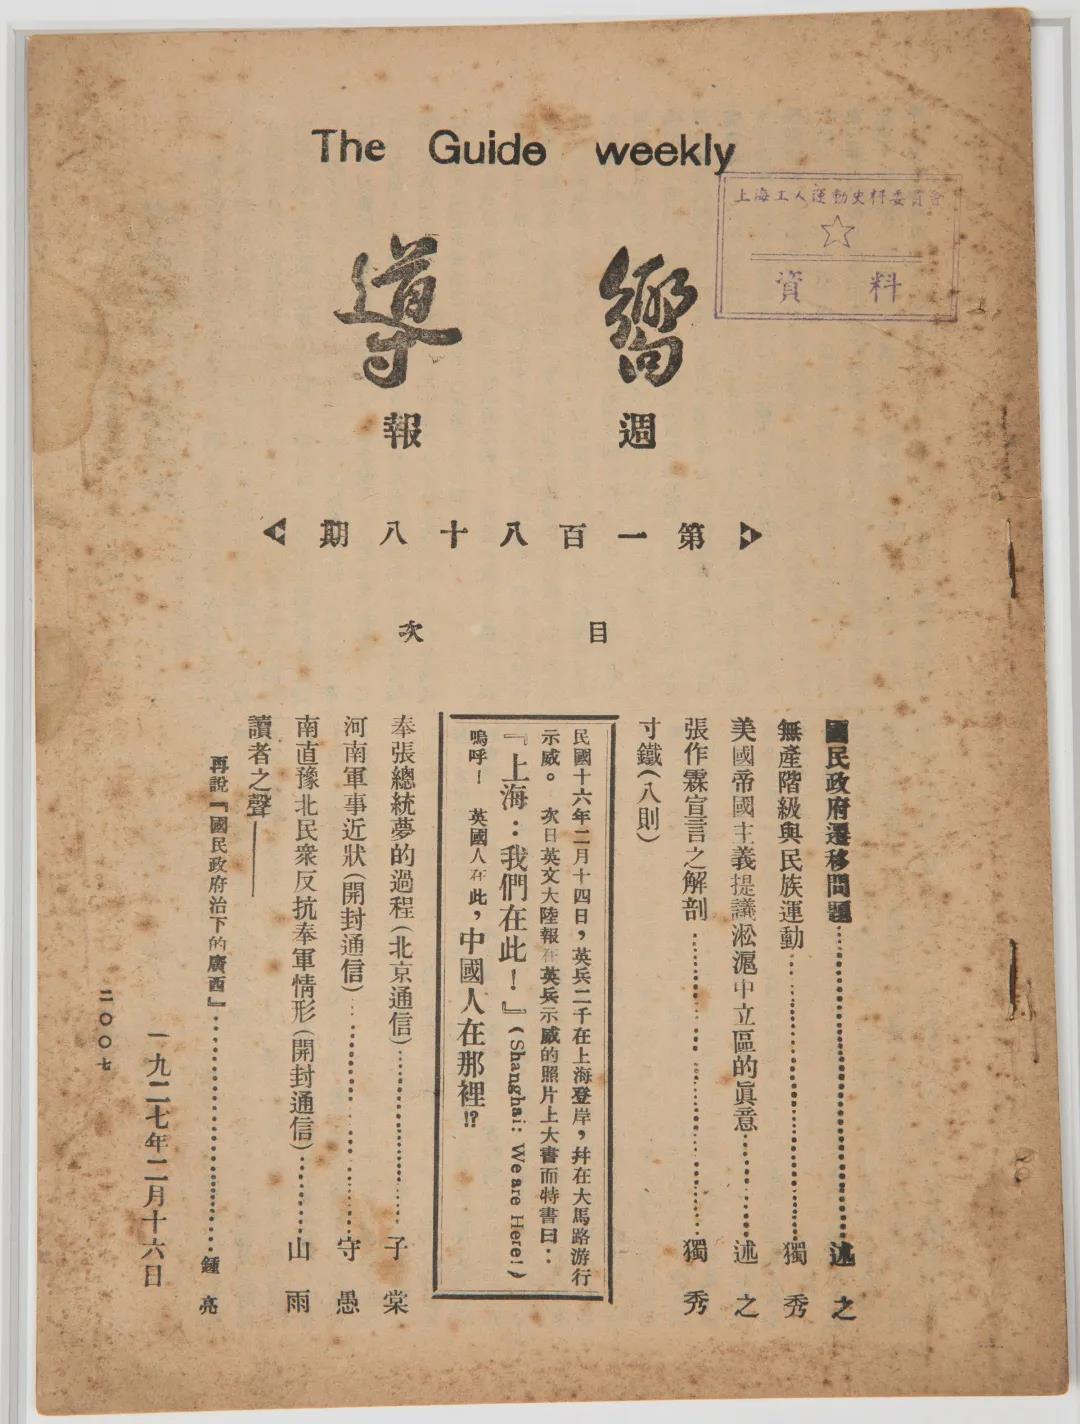 The Guide weekly
上海工人運動史料委員會
資料
嚮導
週報
第一百八十八期
目次
國民政府遷移問題……述之
無產階級與民族運動……獨秀
美國帝國主義提議淞滬中立區的眞意……述之
張作霖宣言之解剖……獨秀
寸鐵(八則)
民國十六年二月十四日，英兵二千在上海登岸，幷在大馬路游行
示威。次日英文大陸報在英兵示威的照片上大書而特書曰：
『上海：我們在此！』(Shanghai: We are Here!)
嗚呼！英國人在此，中國人在那裡!?
奉張總統夢的過程(北京通信)……子棠
河南軍事近狀(開封通信)……守愚
南直豫北民衆反抗奉軍情形(開封通信)……山雨
讀者之聲——
再說『國民政府治下的廣西』……鍾亮
一九二七年二月十六日
二〇〇七